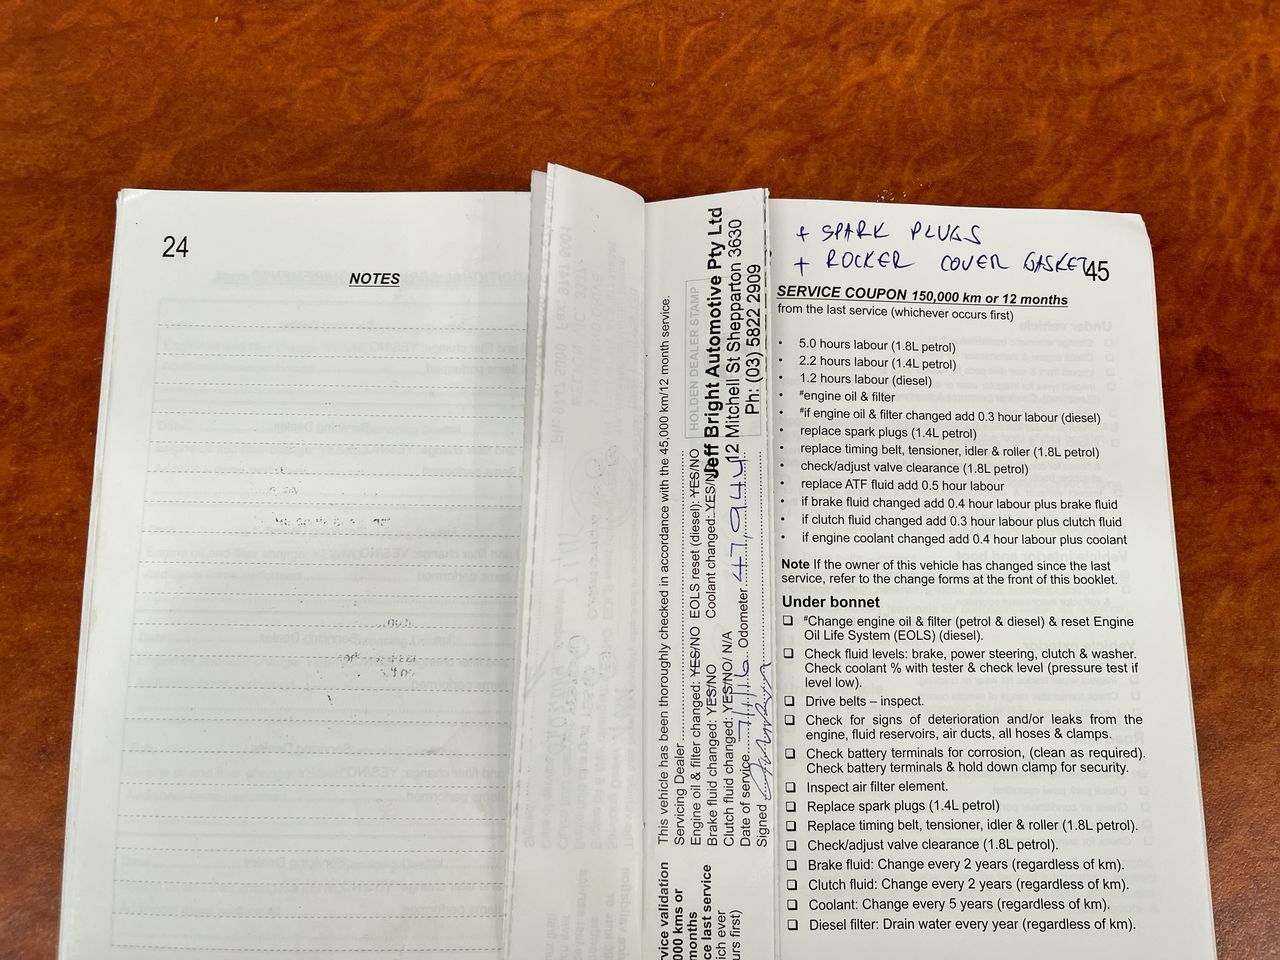 24
NOTES
This vehicle has been thoroughly checked in accordance with the 45,000 km/12 month service.
Servicing Dealer
HOLDEN DEALER STAMP
Engine oil & filter changed: YES/NO EOLS reset (diesel): YES/NO
Brake fluid changed: YES/NO Coolant changed: YES/NO
Clutch fluid changed: YES/NO/ N/A
Date of service Odometer 47,944
Signed
Jeff Bright Automotive Pty Ltd
12 Mitchell St Shepparton 3630
Ph: (03) 5822 2909
+ SPARK PLUGS
+ ROCKER COVER GASKET
45
SERVICE COUPON 150,000 km or 12 months
from the last service (whichever occurs first)
• 5.0 hours labour (1.8L petrol)
• 2.2 hours labour (1.4L petrol)
• 1.2 hours labour (diesel)
• #engine oil & filter
• #if engine oil & filter changed add 0.3 hour labour (diesel)
• replace spark plugs (1.4L petrol)
• replace timing belt, tensioner, idler & roller (1.8L petrol)
• check/adjust valve clearance (1.8L petrol)
• replace ATF fluid add 0.5 hour labour
• if brake fluid changed add 0.4 hour labour plus brake fluid
• if clutch fluid changed add 0.3 hour labour plus clutch fluid
• if engine coolant changed add 0.4 hour labour plus coolant
Note If the owner of this vehicle has changed since the last
service, refer to the change forms at the front of this booklet.
Under bonnet
❑ #Change engine oil & filter (petrol & diesel) & reset Engine
Oil Life System (EOLS) (diesel).
❑ Check fluid levels: brake, power steering, clutch & washer.
Check coolant % with tester & check level (pressure test if
level low).
❑ Drive belts – inspect.
❑ Check for signs of deterioration and/or leaks from the
engine, fluid reservoirs, air ducts, all hoses & clamps.
❑ Check battery terminals for corrosion, (clean as required).
Check battery terminals & hold down clamp for security.
❑ Inspect air filter element.
❑ Replace spark plugs (1.4L petrol)
❑ Replace timing belt, tensioner, idler & roller (1.8L petrol).
❑ Check/adjust valve clearance (1.8L petrol).
❑ Brake fluid: Change every 2 years (regardless of km).
❑ Clutch fluid: Change every 2 years (regardless of km).
❑ Coolant: Change every 5 years (regardless of km).
❑ Diesel filter: Drain water every year (regardless of km).